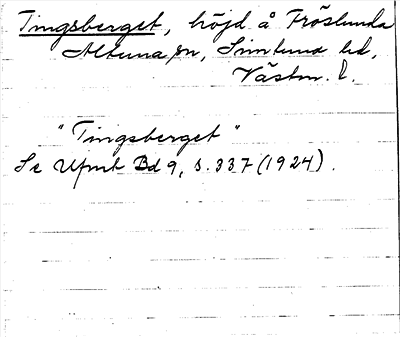 Tingsberget, höjd å Fröslunda
Altuna sn, Simtuna hd,
Västm. l.
"Tingsberget"
Se Ufmt Bd 9, s. 337 (1924).